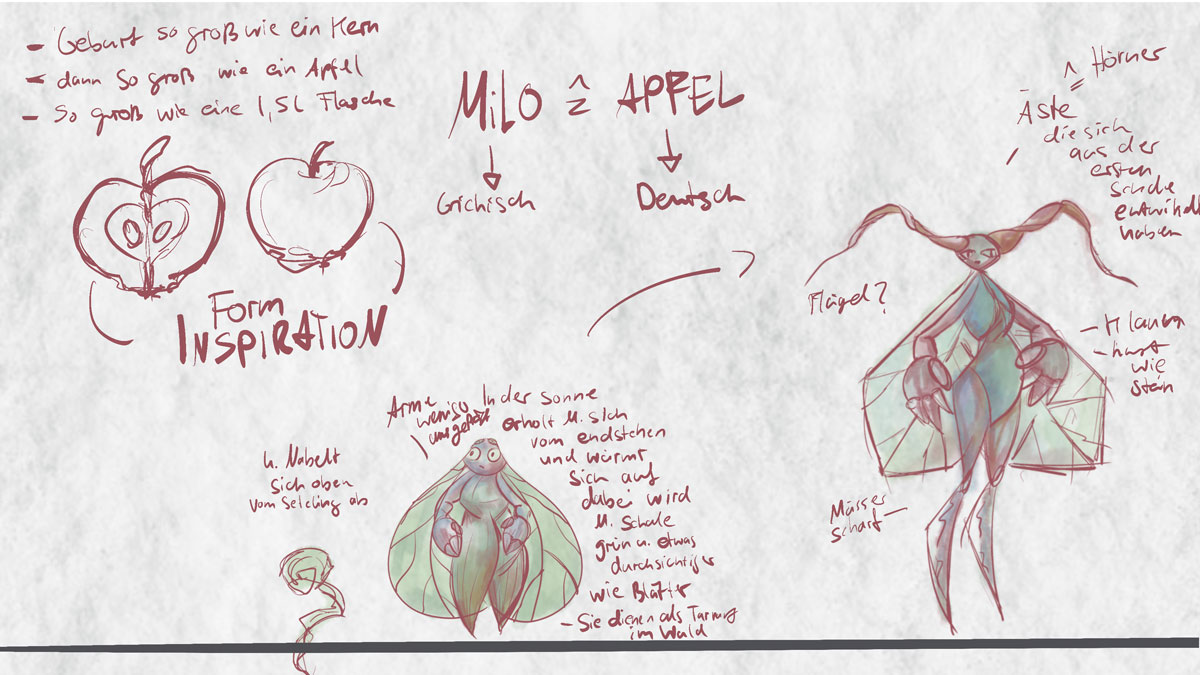 - Geburt so groß wie ein Kern
- dann so groß wie ein Apfel
- so groß wie eine 1,5L Flasche
MiLO ≙ APFEL
Grichisch
Deutsch
Form
INSPIRATION
≙ Hörner
Äste
die sich
aus der
ersten
Schale
entwikelt
haben
Flügel?
- hart
wie
stein
Mässer
scharf
Arme
weniso
In der sonne
erholt M. sich
vom endstehen
und wärmt
sich auf
dabei wird
M. Schale
grün u. etwas
durchsichtiger
wie Blätter
- Sie dienen als Tarnung
im Wald
M. Nabelt
sich oben
vom Setzling ab